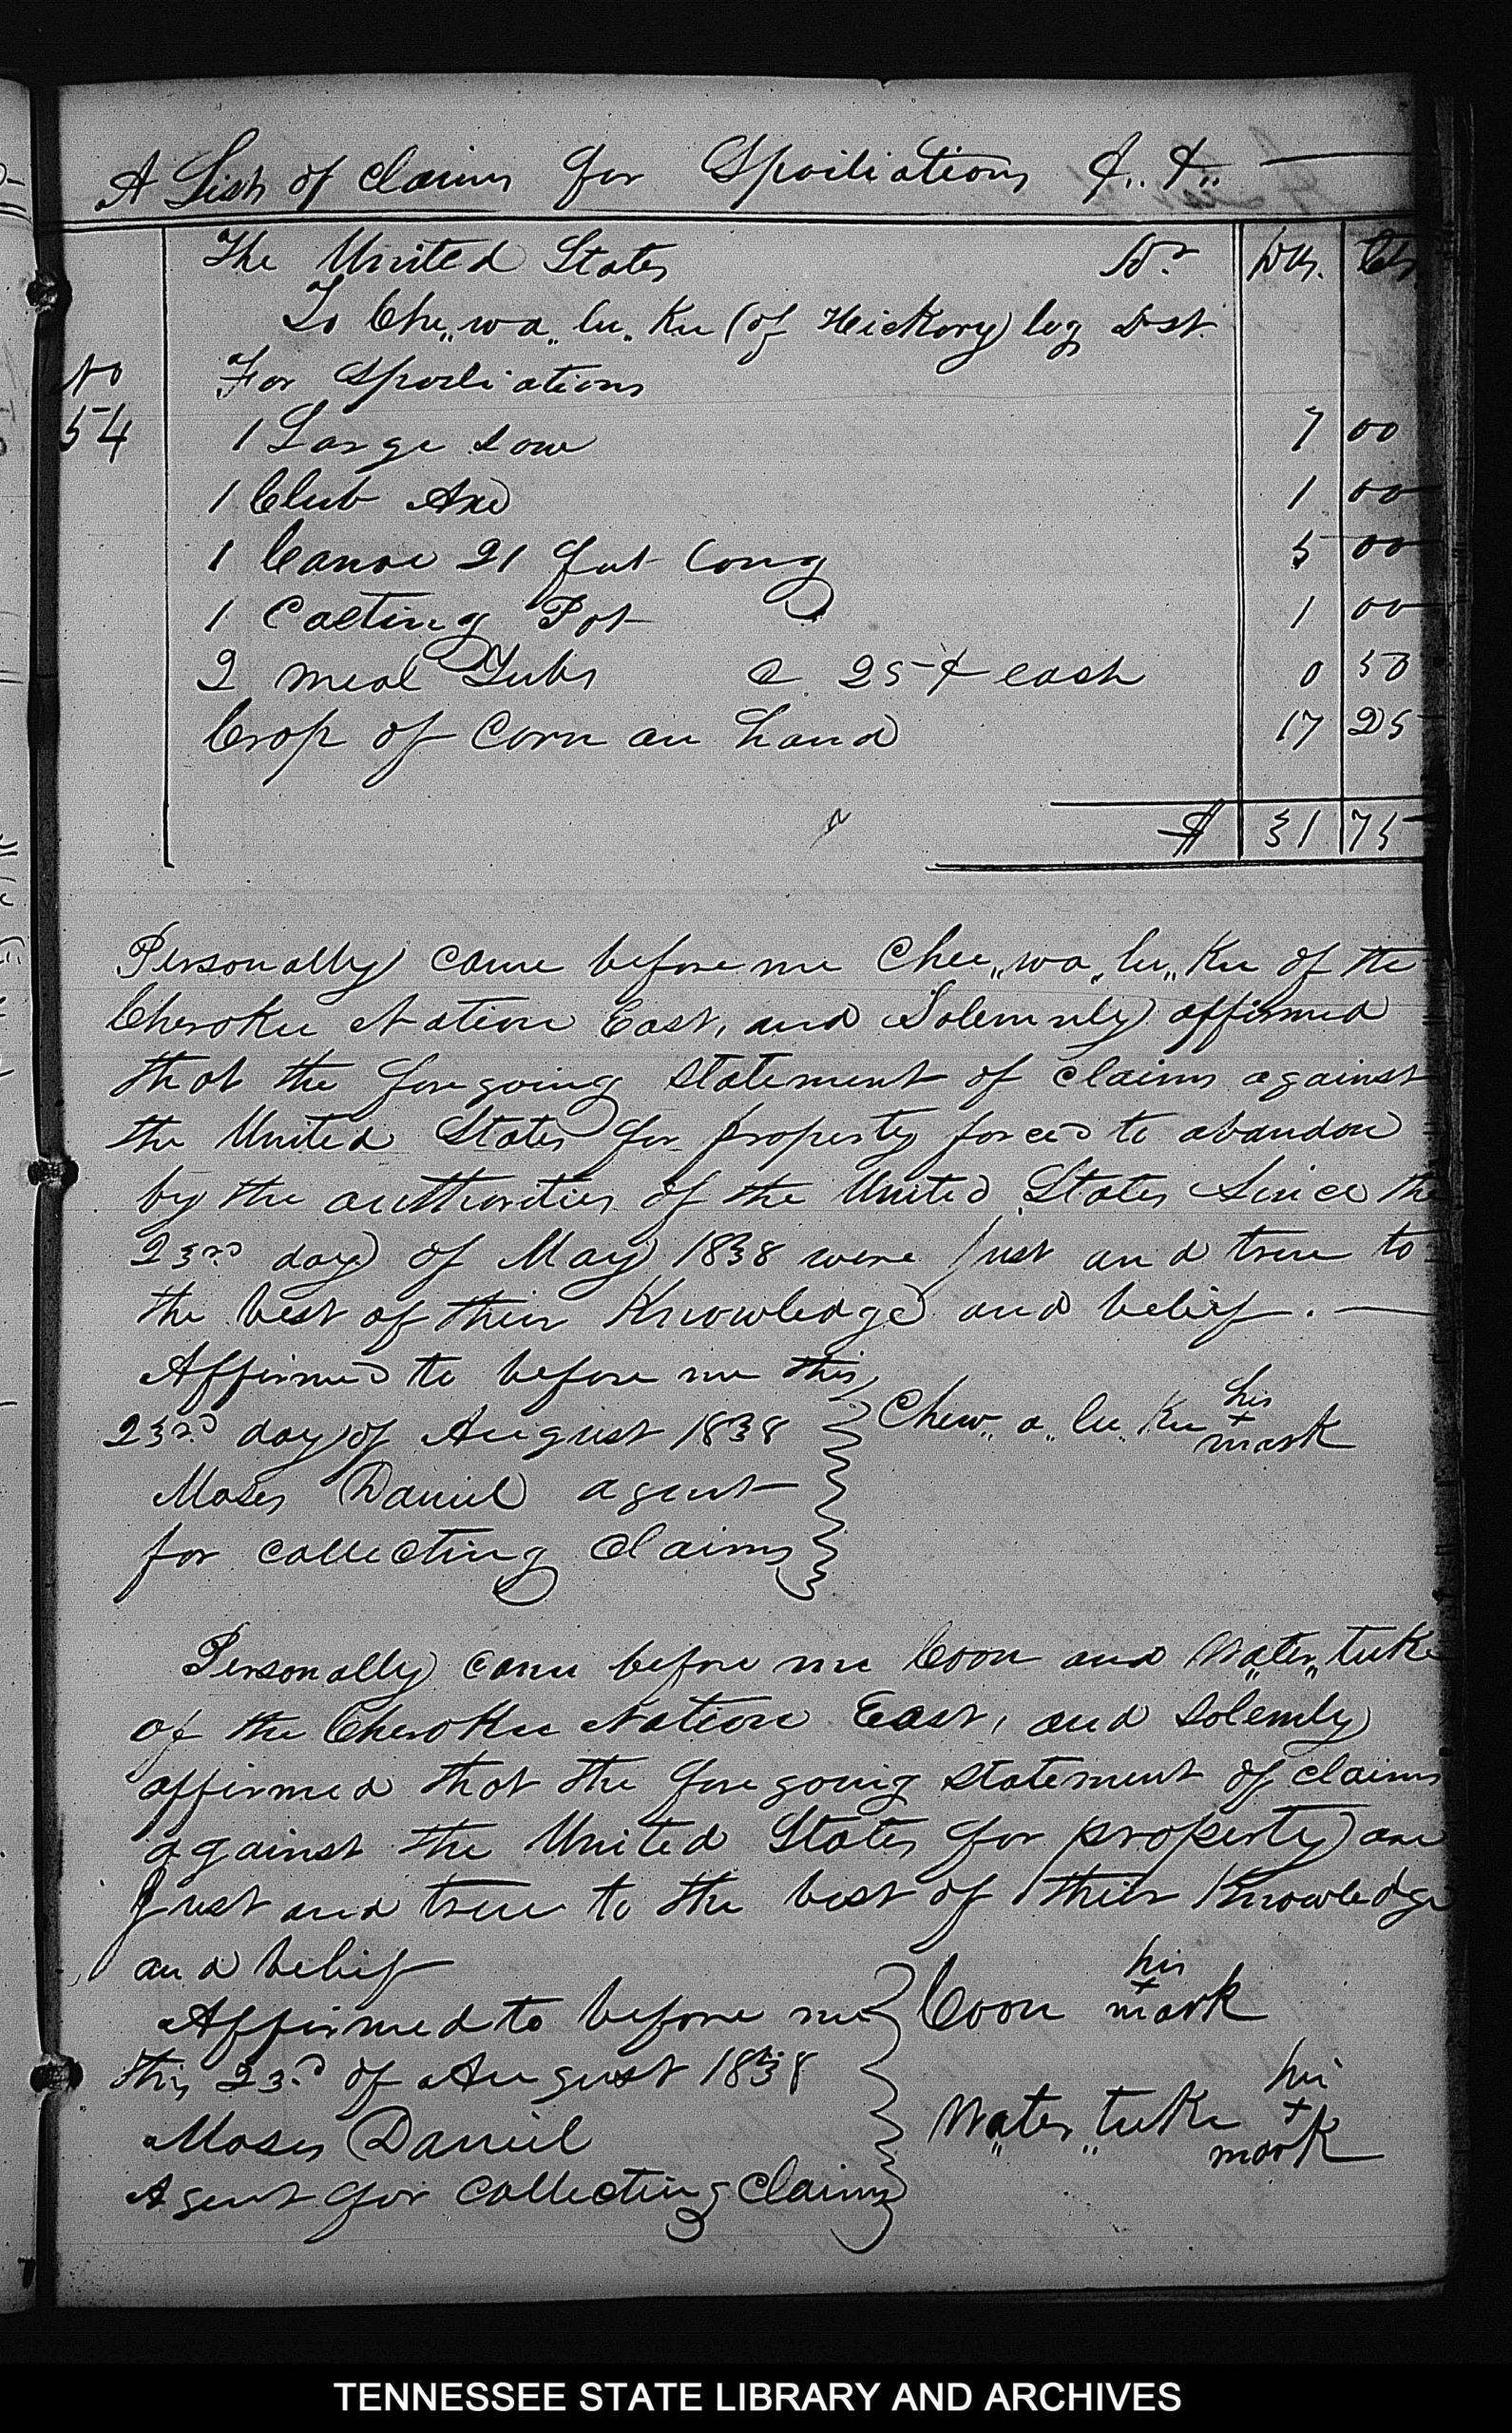 A List of Claims for Spoiliations &.. &..
The United States Dr Dlls. Cts.
To Che,,wa,,lu,,Ku (of Hickory) log Dst.
No For Spoiliations
54 1 Large Sow 7 00
1 Club Axe 1 00
1 Canoe 21 feet long 5 00
1 Casting Pot 1 00
2 meal Tubs @ 25 ¢ each 0 50
Crop of Corn on hand 17 25
$ 31 75
Personally came before me Chee,,wa,,lu,,Ku of the
Cherokee Nation East, and Solemnly affirmed
that the foregoing statement of claims against
the United States for property forced to abandon
by the authorities of the United States Since the
23rd day of May 1838 were just and true to
the best of their Knowledge and belief.
Affirmed to before me this
23rd day of August 1838 Chew,,a,,lu,,Ku his x mark
Moses Daniel agent
for collecting Claims
Personally came before me Coon and Water,,tuke
of the Cherokee Nation East, and Solemly
affirmed that the foregoing statement of claims
against the United States for property are
Just and true to the best of their Knowledge
and belief
Affirmed to before me Coon his x mark
this 23rd of August 1838
Moses Daniel Water,,tuke his x mark
Agent for Collecting Claims
TENNESSEE STATE LIBRARY AND ARCHIVES